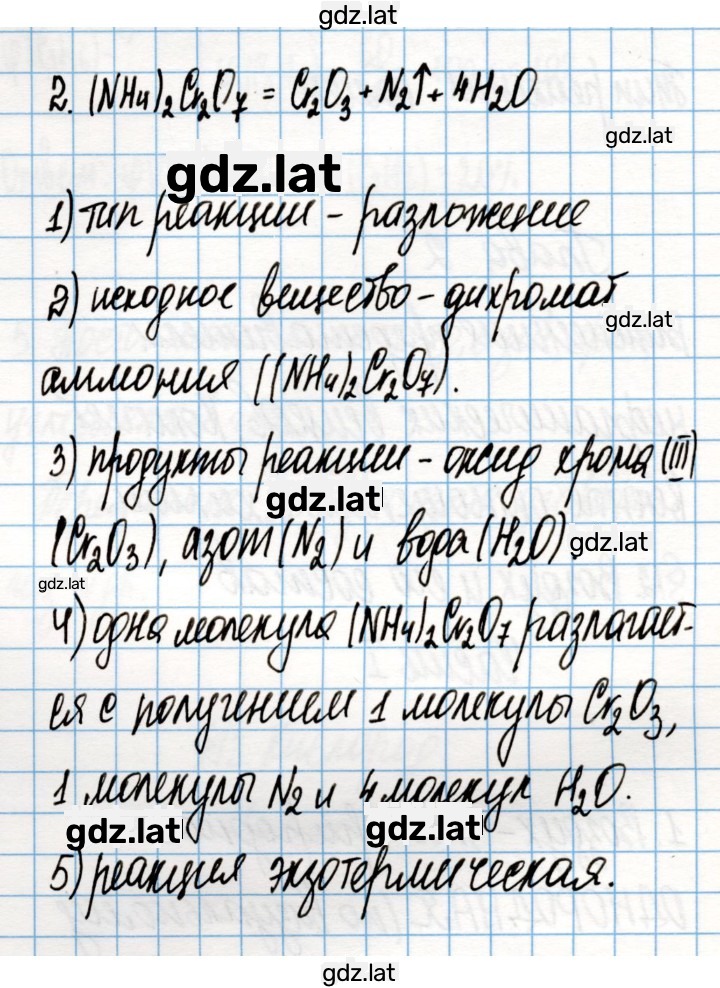 gdz.lat
2. (NH₄)₂Cr₂O₇ = Cr₂O₃ + N₂↑ + 4H₂O
gdz.lat
gdz.lat
1) тип реакции – разложение
2) исходное вещество – дихромат
gdz.lat
аммония ((NH₄)₂Cr₂O₇).
3) продукты реакции – оксид хрома (III)
gdz.lat
(Cr₂O₃), азот (N₂) и вода (H₂O).
gdz.lat
gdz.lat
4) одна молекула (NH₄)₂Cr₂O₇ разлагает-
ся с получением 1 молекулы Cr₂O₃,
1 молекулы N₂ и 4 молекул H₂O.
gdz.lat
gdz.lat
5) реакция экзотермическая.
gdz.lat